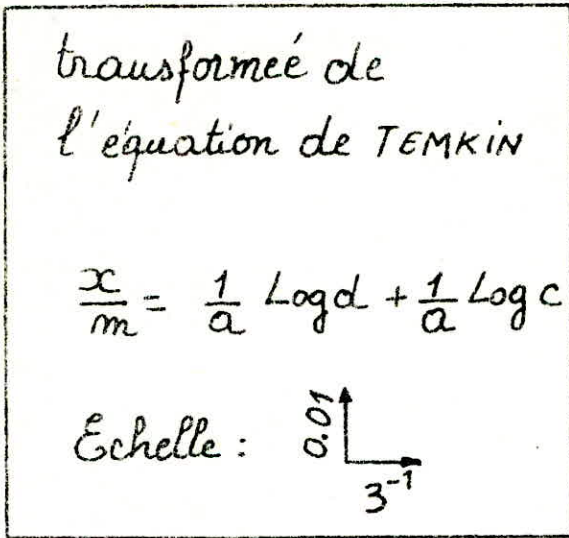 transformeé de
l'équation de TEMKIN
x/m = 1/a Log d + 1/a Log c
Echelle :
0.01
3⁻¹